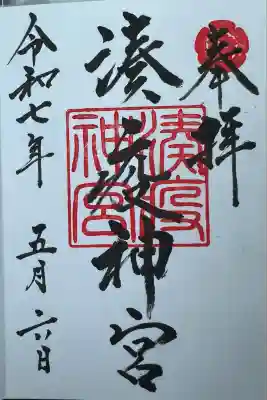 奉拝
湊疫神宮
令和七年 五月六日
湊疫神宮